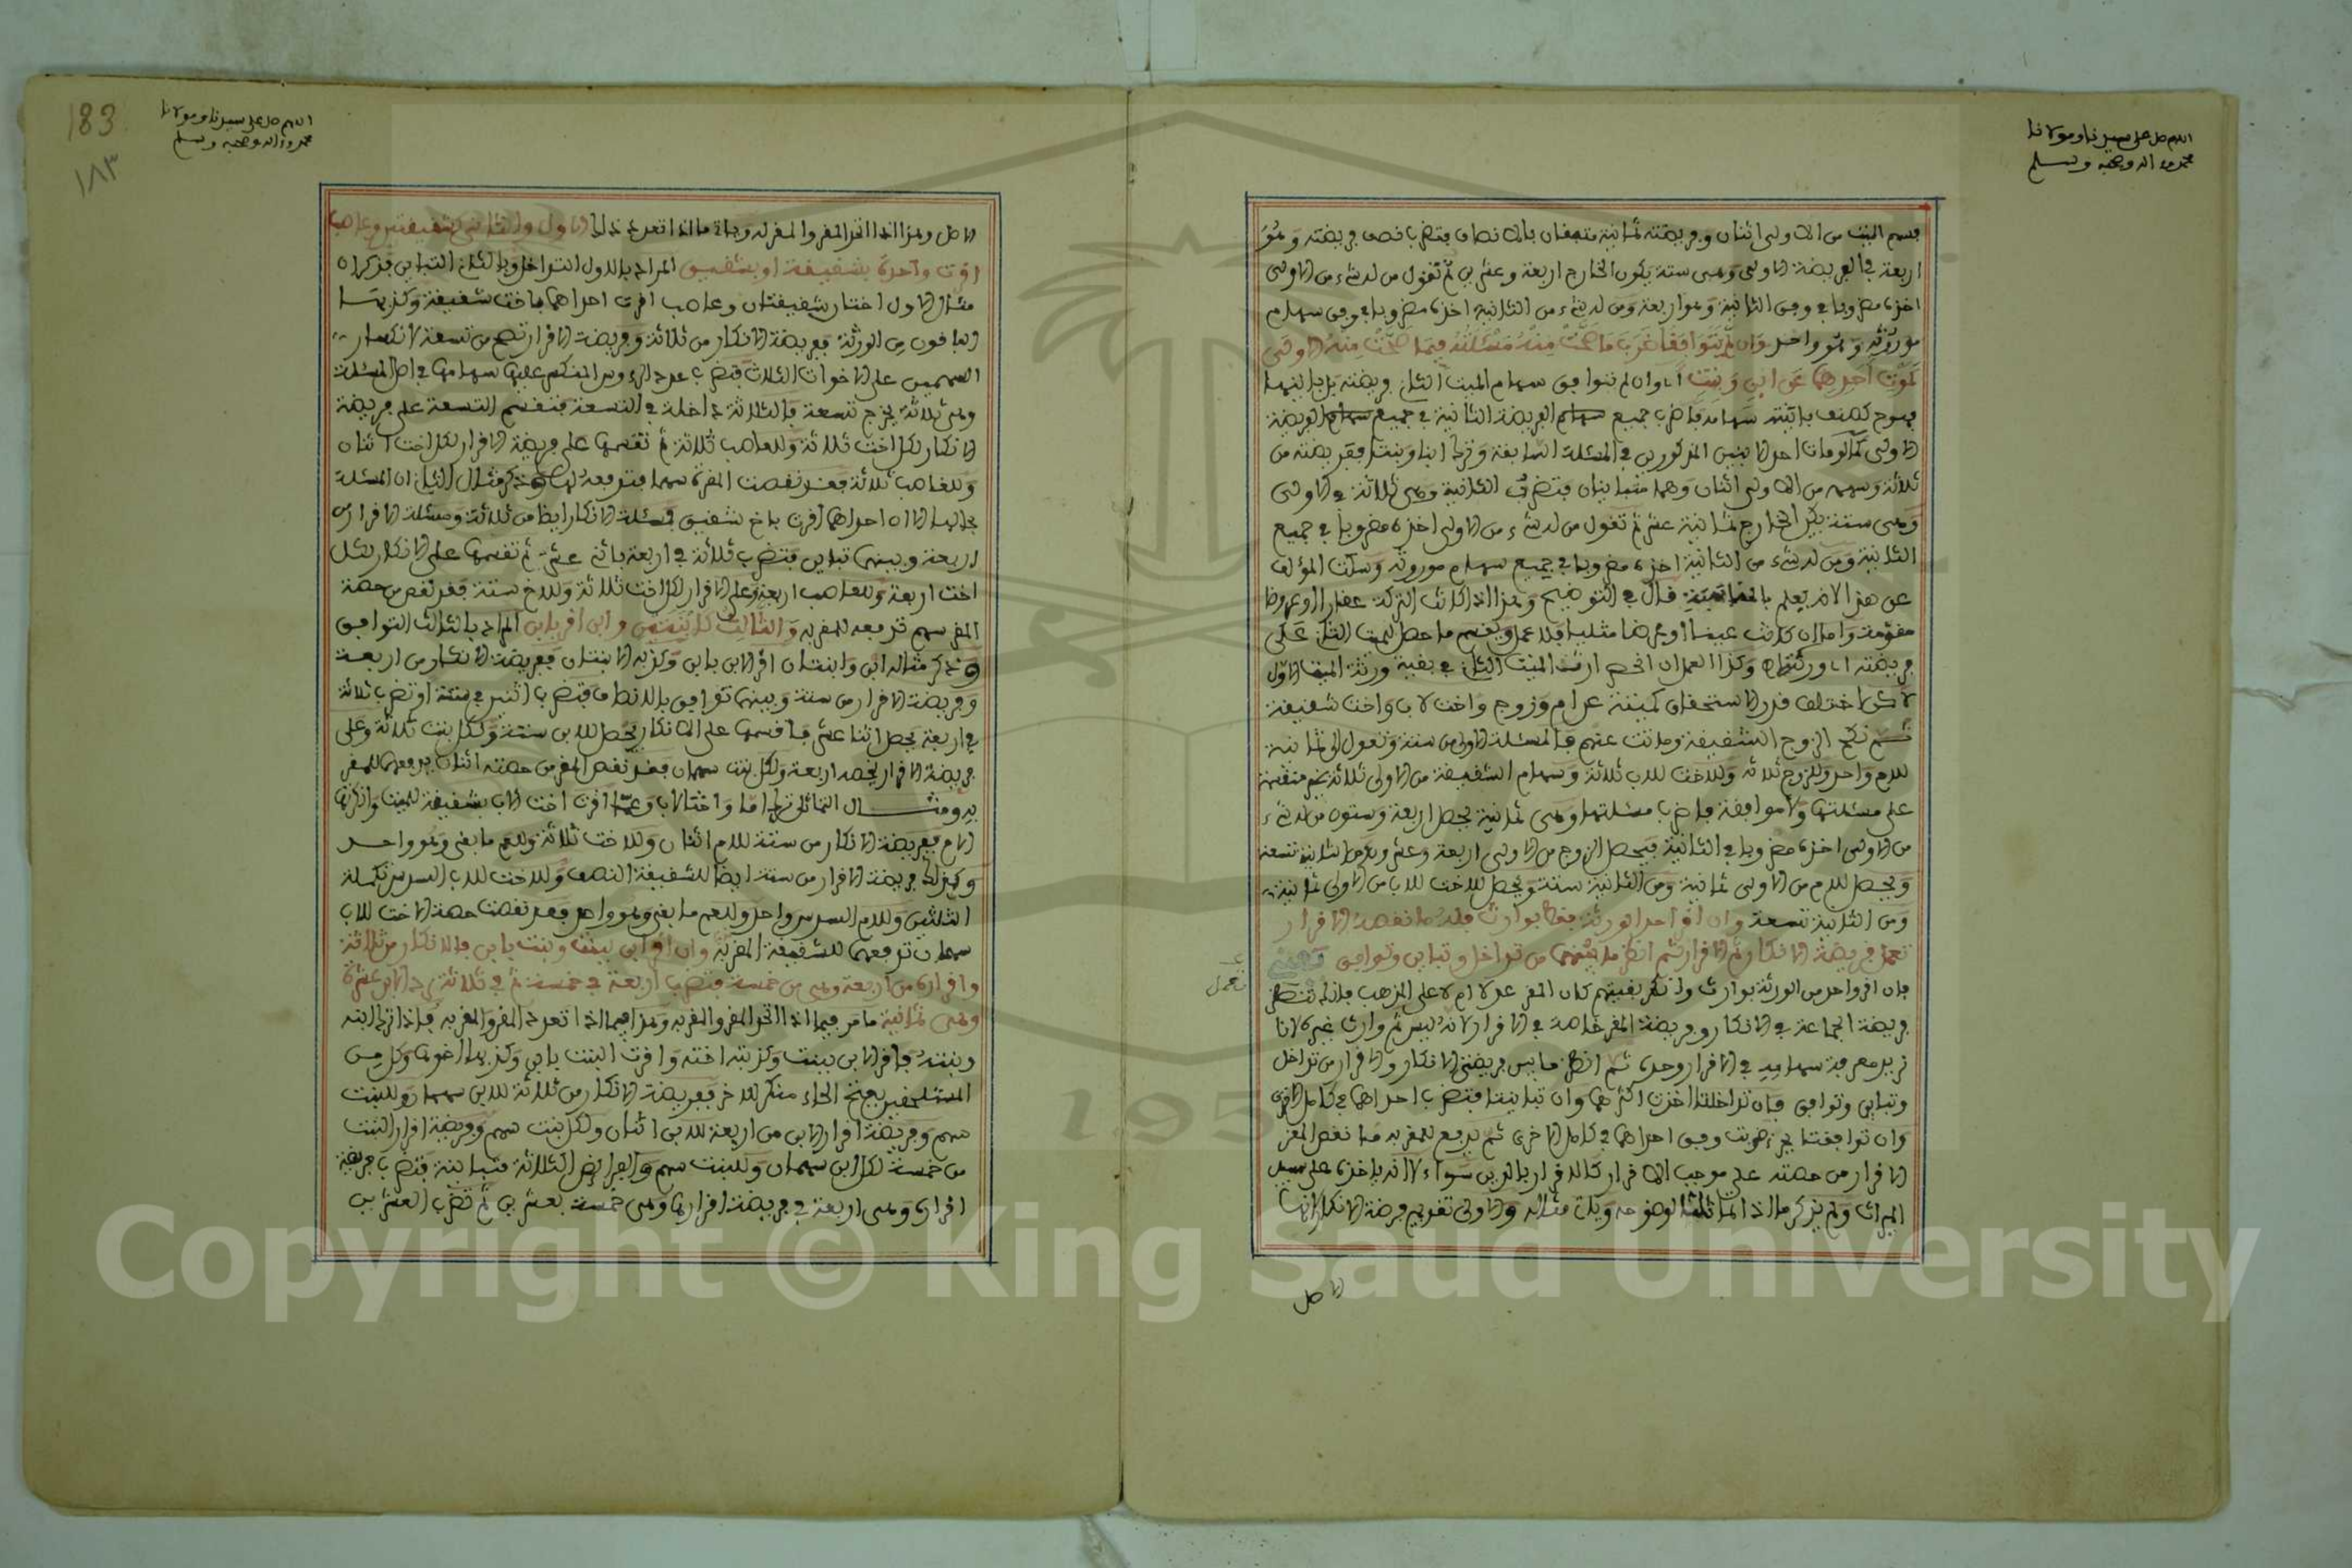 اللهم صل على سيدنا ومولانا
محمد وءاله وصحبه وسلم
فسهم الميت من الاولى اثنان وفريضته ثمانية متفقان بالانصاف فتضرب نصف فريضته وهو
اربعة في الفريضة الاولى وهي ستة يكون الخارج اربعة وعشرين ثم تقول من له شيء من الاولى
اخذه مضروبا في وفق الثانية وهو اربعة ومن له شيء من الثانية اخذه مضروبا في وفق سهام
موروثه وهو واحد وان لم يتوافقا ضربت ما صحت منه مسئلته فيما صحت منه الاولى
كموت احدهما عن ابن وبنت اي وان لم توافق سهام الميت الثاني فريضته بل باينها
سهامه فاضرب جميع سهام الفريضة الثانية في جميع سهام الفريضة
الاولى كما لو مات احد الابنين المذكورين في المسئلة السابقة وترك ابنا وبنتا ففريضته من
ثلاثة وسهمه من الاولى اثنان وهما متباينان فتضرب الثانية وهي ثلاثة في الاولى
وهي ستة يكن الخارج ثمانية عشر ثم تقول من له شيء من الاولى اخذه مضروبا في جميع
الثانية ومن له شيء من الثانية اخذه مضروبا في جميع سهام موروثه وسكت المؤلف
عن هذا لانه يعلم قال في التوضيح وهذا اذا كانت التركة عقارا او عروضا
مقومة واما ان كانت عينا او عرضا مثليا فلا عمل ويقسم ما حصل للميت الثاني على
فريضته اي ورثته وكذا العمل ان انحصر ارث الميت الثاني في بقية ورثة الميت الاول
لكن اختلف قدر الاستحقاق كميتة عن ام وزوج واخت لاب واخت شقيقة
ثم نكح الزوج الشقيقة وماتت عنهم فالمسئلة الاولى من ستة وتعول الى ثمانية
للام واحد وللزوج ثلاثة وللاخت للاب ثلاثة وسهام الشقيقة من الاولى ثلاثة غير منقسمة
على مسئلتها ولا موافقة فاضرب مسئلتها وهي ثمانية يحصل اربعة وستون من له شيء
من الاولى اخذه مضروبا في الثانية فيحصل للزوج من الاولى اربعة وعشرون ومن الثانية تسعة
ويحصل للام من الاولى ثمانية ومن الثانية ستة ويحصل للاخت للاب من الاولى ثمانية
ومن الثانية تسعة وان اقر احد الورثة فقط بوارث فله ما نقصه الاقرار
تعمل فريضة الانكار ثم الاقرار ثم انظر ما بينهما من تداخل وتباين وتوافق
فان اقر واحد من الورثة بوارث وانكر بقيتهم كان المقر عدلا ام لا على المذهب فانك تنظر
فريضة الجماعة في الانكار وفريضة المقر خاصة في الاقرار لانه ليس ثم وارث غيره لانا
نريد معرفة سهامه في الاقرار وحده ثم انظر ما بين فريضتي الانكار والاقرار من تداخل
وتباين وتوافق فان تداخلتا اخذت اكثرهما وان تباينتا فتضرب احداهما في كامل الاخرى
وان توافقتا ضربت وفق احداهما في كامل الاخرى ثم يدفع للمقر به ما نقص المقر
الاقرار من حصته على موجب الاقرار كالاقرار بالدين سواء لا انه ياخذه على سبيل
الميراث ولم يذكر ما اذا تماثلتا لوضوحه وياتي مثاله والاولى تقديم فريضة الانكار لانها
الاصل
اللهم صل على سيدنا ومولانا
محمد وءاله وصحبه وسلم
183
١٨٣
الاصل وهذا اذا اتحد المقر والمقر له وياتي ما اذا تعدد ذلك الاول والثاني كشقيقتين وعاصب
اقرت واحدة بشقيقة او بشقيق المراد بالاول التداخل وبالثاني التباين فذكر ان
مثال الاول اختان شقيقتان وعاصب اقرت احداهما باخت شقيقة وكذبها
الباقون من الورثة ففريضة الانكار من ثلاثة وفريضة الاقرار تصح من تسعة لانكسار
السهمين على الاخوات الثلاث فتضرب عدد الرءوس المنكسر عليها سهامها في اصل المسئلة
وهي ثلاثة يخرج تسعة فالثلاثة داخلة في التسعة فتقسم التسعة على فريضة
الانكار لكل اخت ثلاثة وللعاصب ثلاثة ثم تقسمها على فريضة الاقرار لكل اخت اثنان
وللعاصب ثلاثة فقد نقصت المقرة سهما فتدفعه لها وذكر مثال الثاني ان المسئلة
بحالها الا ان احداهما اقرت باخ شقيق فمسئلة الانكار ايضا من ثلاثة ومسئلة الاقرار من
اربعة وبينهما تباين فتضرب ثلاثة في اربعة باثني عشر ثم تقسمها على الانكار لكل
اخت اربعة وللعاصب اربعة وعلى الاقرار لكل اخت ثلاثة وللاخ ستة فقد نقص من حصة
المقر سهم تدفعه للمقر به والثالث كابنتين وابن اقر بابن المراد بالثالث التوافق
وذكر مثاله ابن وابنتان اقر الابن بابن وكذبه الابنتان ففريضة الانكار من اربعة
وفريضة الاقرار من ستة وبينهما توافق بالانصاف فتضرب اثنين في ستة او تضرب ثلاثة
في اربعة يحصل اثنا عشر فاقسمها على الانكار يحصل للابن ستة ولكل بنت ثلاثة وعلى
فريضة الاقرار يخصه اربعة ولكل بنت سهمان فقد نقص المقر من حصته اثنان يدفعهما للمقر
به ومثال التماثل ترك اما واختا لاب وعما اقرت اخت الاب بشقيقة للميت وانكرتها
الام ففريضة الانكار من ستة للام اثنان وللاخت ثلاثة وللعم ما بقي وهو واحد
وكذلك فريضة الاقرار من ستة ايضا للشقيقة النصف وللاخت للاب السدس تكملة
الثلثين وللام السدس واحد وللعم ما بقي وهو واحد فقد نقصت حصة الاخت للاب
سهمان تدفعهما للشقيقة المقر بها وان اقر ابن ببنت وبنت بابن فالانكار من ثلاثة
واقراره من اربعة وهي من خمسة فتضرب اربعة في خمسة ثم في ثلاثة يرد الابن عشرة
وهي ثمانية ما مر فيما اذا اتحد المقر والمقر به وهذا فيما اذا تعدد المقر والمقر به فاذا ترك ابنه
وبنته فاقر الابن ببنت وكذبته اخته واقرت البنت بابن وكذبها اخوها وكل من
المستلحقين بفتح الحاء منكر للاخر ففريضة الانكار من ثلاثة للابن سهمان وللبنت
سهم وفريضة اقرار الابن من اربعة للابن اثنان ولكل بنت سهم وفريضة اقرار البنت
من خمسة لكل ابن سهمان وللبنت سهم والفرائض الثلاثة متباينة فتضرب فريضة
اقراره وهي اربعة في فريضة اقرارها وهي خمسة بعشرين ثم تضرب العشرين